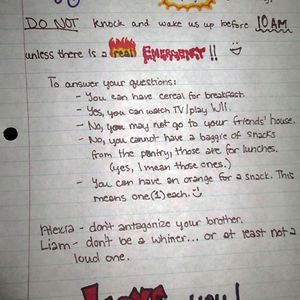 DO NOT knock and wake us up before 10 AM
unless there is a real EMERGENCY!!
To answer your questions:
- You can have cereal for breakfast.
- Yes, you can watch TV/play Wii.
- No, you may not go to your friends' house.
- No, you cannot have a baggie of snacks
from the pantry, those are for lunches.
(yes, I mean those ones.)
- You can have an orange for a snack. This
means one (1) each.
Alexia - don't antagonize your brother.
Liam - don't be a whiner... or at least not a
loud one.
you!